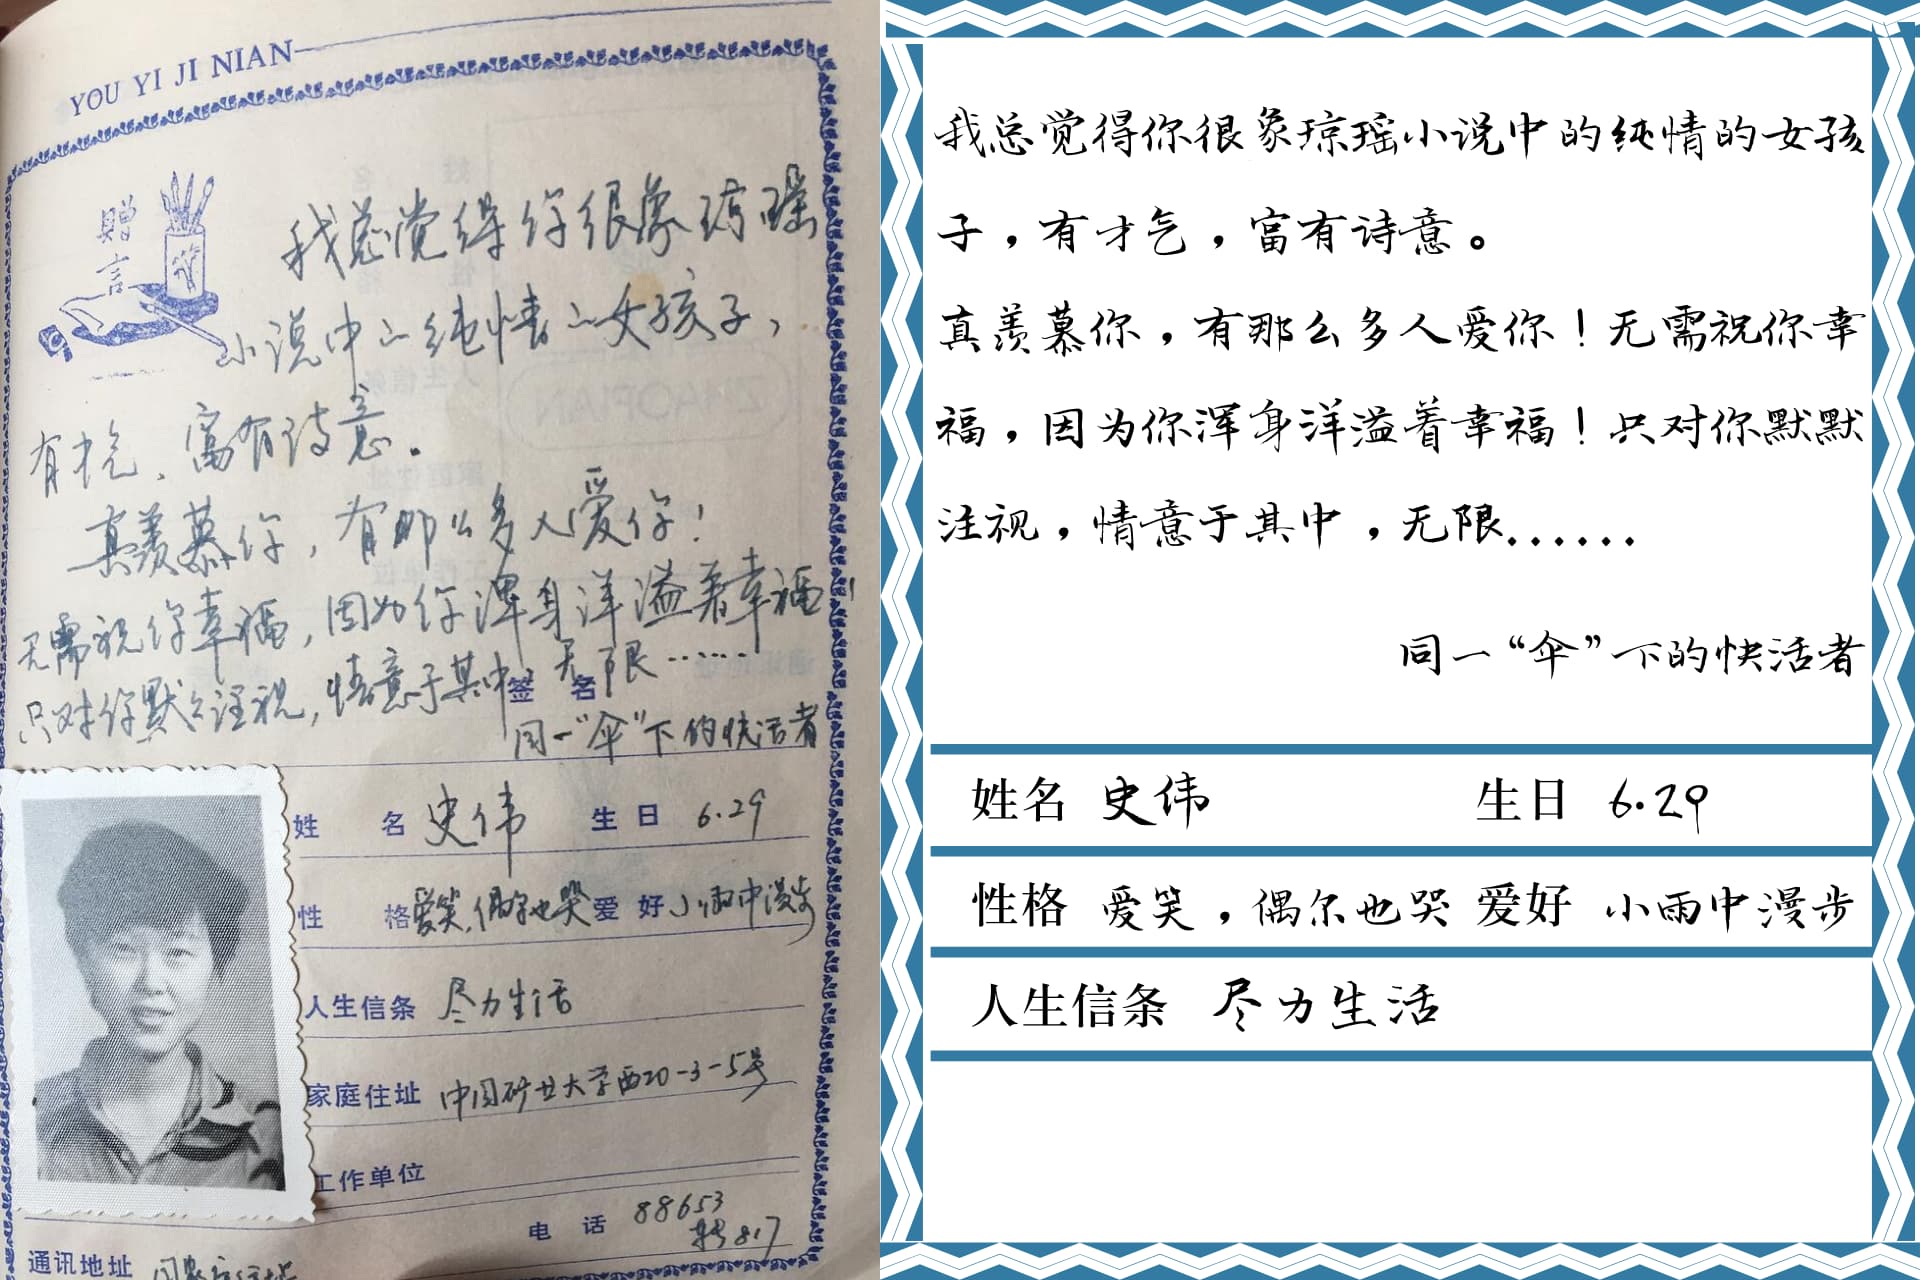 YOU YI JI NIAN
赠言
我总觉得你很象琼瑶
小说中的纯情的女孩子，
有才气，富有诗意。
真羡慕你，有那么多人爱你！
无需祝你幸福，因为你浑身洋溢着幸福！
只对你默默注视，情意于其中，无限……
签 名
同一“伞”下的快活者
姓 名 史伟 生日 6.29
性 格 爱笑，偶尔也哭 爱好 小雨中漫步
人生信条 尽力生活
家庭住址 中国矿业大学西20-3-5号
工作单位
电 话 88653
转817
通讯地址 同家庭住址
我总觉得你很象琼瑶小说中的纯情的女孩
子，有才气，富有诗意。
真羡慕你，有那么多人爱你！无需祝你幸
福，因为你浑身洋溢着幸福！只对你默默
注视，情意于其中，无限......
同一“伞”下的快活者
姓名 史伟 生日 6.29
性格 爱笑，偶尔也哭 爱好 小雨中漫步
人生信条 尽力生活